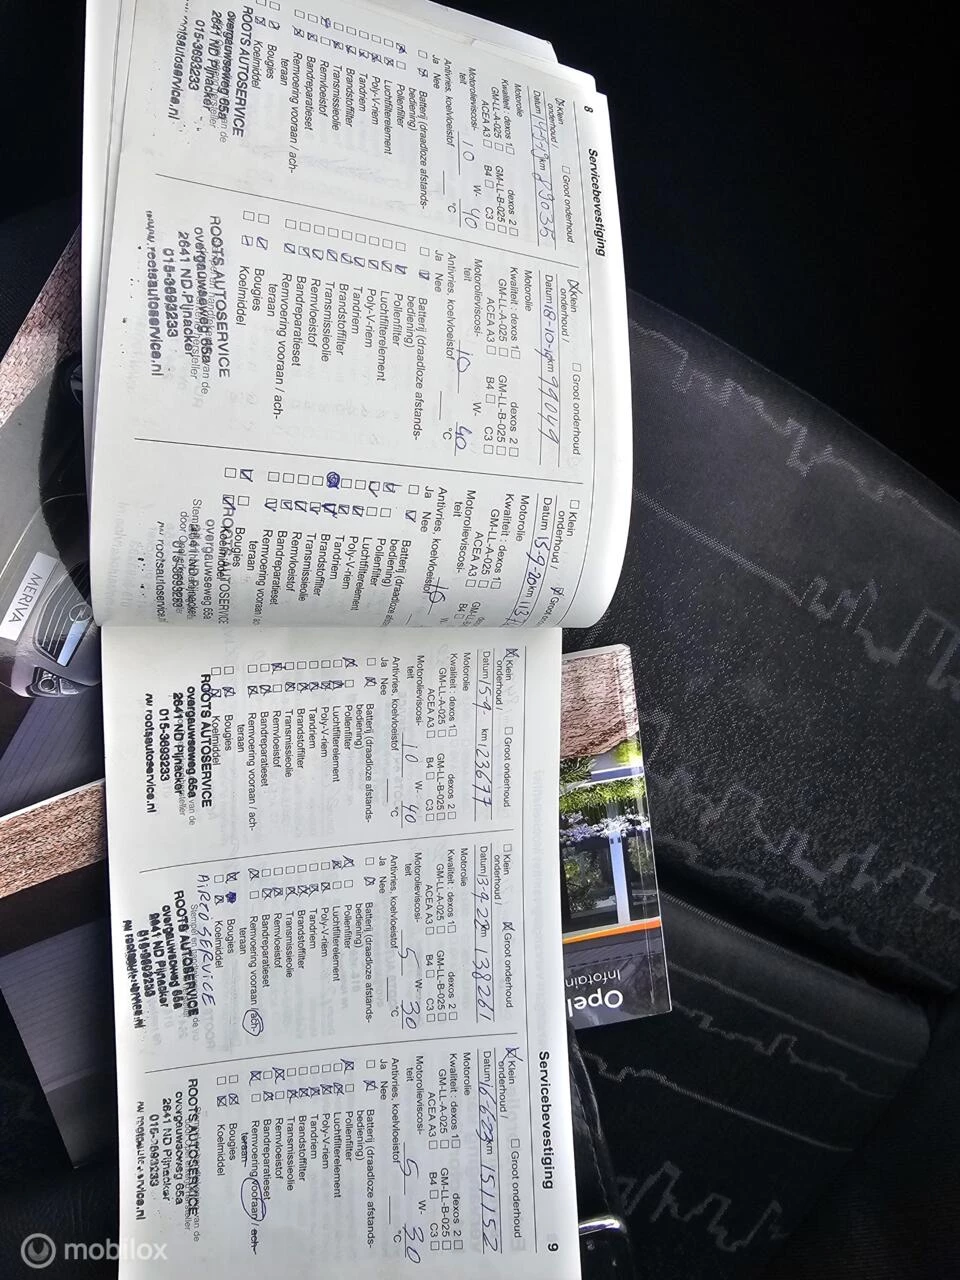 8 Servicebevestiging
☒ Klein onderhoud / ☐ Groot onderhoud
km 89035
Motorolie
Kwaliteit : dexos 1 ☐ dexos 2 ☐
GM-LL-A-025 ☐ GM-LL-B-025 ☐
ACEA A3 ☐ B4 ☐ C3 ☐
Motorolieviscosi-
teit 10 W- 40
Antivries, koelvloeistof °C
Ja Nee
Batterij (draadloze afstands-
bediening)
Pollenfilter
Luchtfilterelement
Poly-V-riem
Tandriem
Brandstoffilter
Transmissieolie
Remvloeistof
Bandreparatieset
Remvoering vooraan / ach-
teraan
Bougies
Koelmiddel
ROOTS AUTOSERVICE
overgauwseweg 65a
2641 ND Pijnacker
015-3693233
www.rootsautoservice.nl
☒ Klein onderhoud / ☐ Groot onderhoud
Datum 18-10-19 km 99049
Motorolie
Kwaliteit : dexos 1 ☐ dexos 2 ☐
GM-LL-A-025 ☐ GM-LL-B-025 ☐
ACEA A3 ☐ B4 ☐ C3 ☐
Motorolieviscosi-
teit 10 W- 40
Antivries, koelvloeistof °C
Ja Nee
Batterij (draadloze afstands-
bediening)
Pollenfilter
Luchtfilterelement
Poly-V-riem
Tandriem
Brandstoffilter
Transmissieolie
Remvloeistof
Bandreparatieset
Remvoering vooraan / ach-
teraan
Bougies
Koelmiddel
ROOTS AUTOSERVICE
overgauwseweg 65a
2641 ND Pijnacker
015-3693233
www.rootsautoservice.nl
☐ Klein onderhoud / ☒ Groot
Datum 15-9-20 km
Motorolie
Kwaliteit : dexos 1 ☐
GM-LL-A-025 ☐
ACEA A3 ☐ B4
Motorolieviscosi-
teit 10 W-
Antivries, koelvloeistof
Ja Nee
Batterij (draadloze
bediening)
Pollenfilter
Luchtfilterelement
Poly-V-riem
Tandriem
Brandstoffilter
Transmissieolie
Remvloeistof
Bandreparatieset
Remvoering vooraan /
Bougies
Koelmiddel
ROOTS AUTOSERVICE
overgauwseweg 65a
2641 ND Pijnacker
015-3693233
rootsautoservice.nl
☒ Klein onderhoud / ☐ Groot onderhoud
Datum 15-9- km 123677
Motorolie
Kwaliteit : dexos 1 ☐ dexos 2 ☐
GM-LL-A-025 ☐ GM-LL-B-025 ☐
ACEA A3 ☐ B4 ☐ C3 ☐
Motorolieviscosi-
teit 10 W- 40
Antivries, koelvloeistof °C
Ja Nee
Batterij (draadloze afstands-
bediening)
Pollenfilter
Luchtfilterelement
Poly-V-riem
Tandriem
Brandstoffilter
Transmissieolie
Remvloeistof
Bandreparatieset
Remvoering vooraan / ach-
teraan
Bougies
Koelmiddel
ROOTS AUTOSERVICE
overgauwseweg 65a
2641 ND Pijnacker
015-3693233
rootsautoservice.nl
☐ Klein onderhoud / ☒ Groot onderhoud
Datum 13-9-22 km 138261
Motorolie
Kwaliteit : dexos 1 ☐ dexos 2 ☐
GM-LL-A-025 ☐ GM-LL-B-025 ☐
ACEA A3 ☐ B4 ☐ C3 ☐
Motorolieviscosi-
teit 5 W- 30
Antivries, koelvloeistof °C
Ja Nee
Batterij (draadloze afstands-
bediening)
Pollenfilter
Luchtfilterelement
Poly-V-riem
Tandriem
Brandstoffilter
Transmissieolie
Remvloeistof
Bandreparatieset
Remvoering vooraan / ach-
teraan
Bougies
Koelmiddel
Airco SERVICE
ROOTS AUTOSERVICE
overgauwseweg 65a
2641 ND Pijnacker
015-3693233
Servicebevestiging 9
☒ Klein onderhoud / ☐ Groot onderhoud
km 151152
Motorolie
Kwaliteit : dexos 1 ☐ dexos 2 ☐
GM-LL-A-025 ☐ GM-LL-B-025 ☐
ACEA A3 ☐ B4 ☐ C3 ☐
Motorolieviscosi-
teit 5 W- 30
Antivries, koelvloeistof °C
Ja Nee
Batterij (draadloze afstands-
bediening)
Pollenfilter
Luchtfilterelement
Poly-V-riem
Tandriem
Brandstoffilter
Transmissieolie
Remvloeistof
Bandreparatieset
Remvoering vooraan / ach-
teraan
Bougies
Koelmiddel
ROOTS AUTOSERVICE
overgauwseweg 65a
2641 ND Pijnacker
015-3693233
MERIVA
Opel
Infotain
mobilox